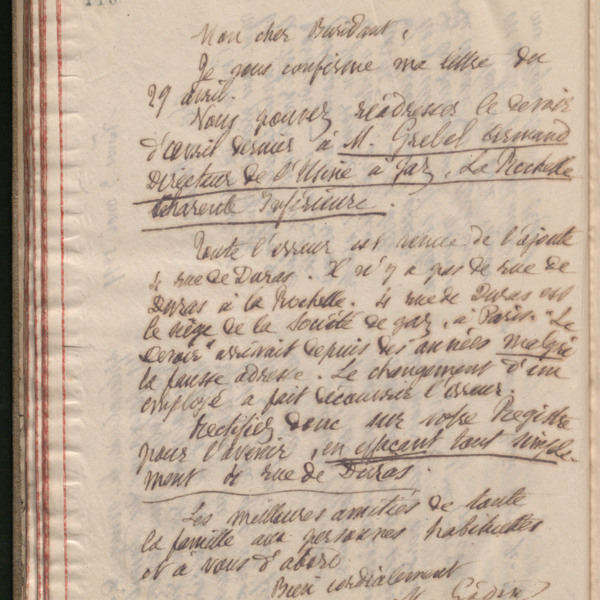 Mon cher Buridant,
Je vous confirme ma lettre du
29 avril.
Vous pouvez réadresser le Devoir
d'avril dernier à M. Grebel Armand
Directeur de l'Usine à Gaz, La Rochelle
Charente Inférieure.
Toute l'erreur est venue de l'ajoute
4 rue de Duras. Il n'y a pas de rue de
Duras à la Rochelle. 4 rue de Duras est
le siège de la Société de gaz, à Paris. "Le
Devoir" arrivait depuis des années malgré
la fausse adresse. Le changement d'un
employé a fait découvrir l'erreur.
Rectifiez donc sur votre Registre
pour l'avenir, en effaçant tout simple-
ment 4 rue de Duras.
Les meilleures amitiés de toute
la famille aux personnes habituelles
et à vous d'abord
Bien cordialement
M. Godin